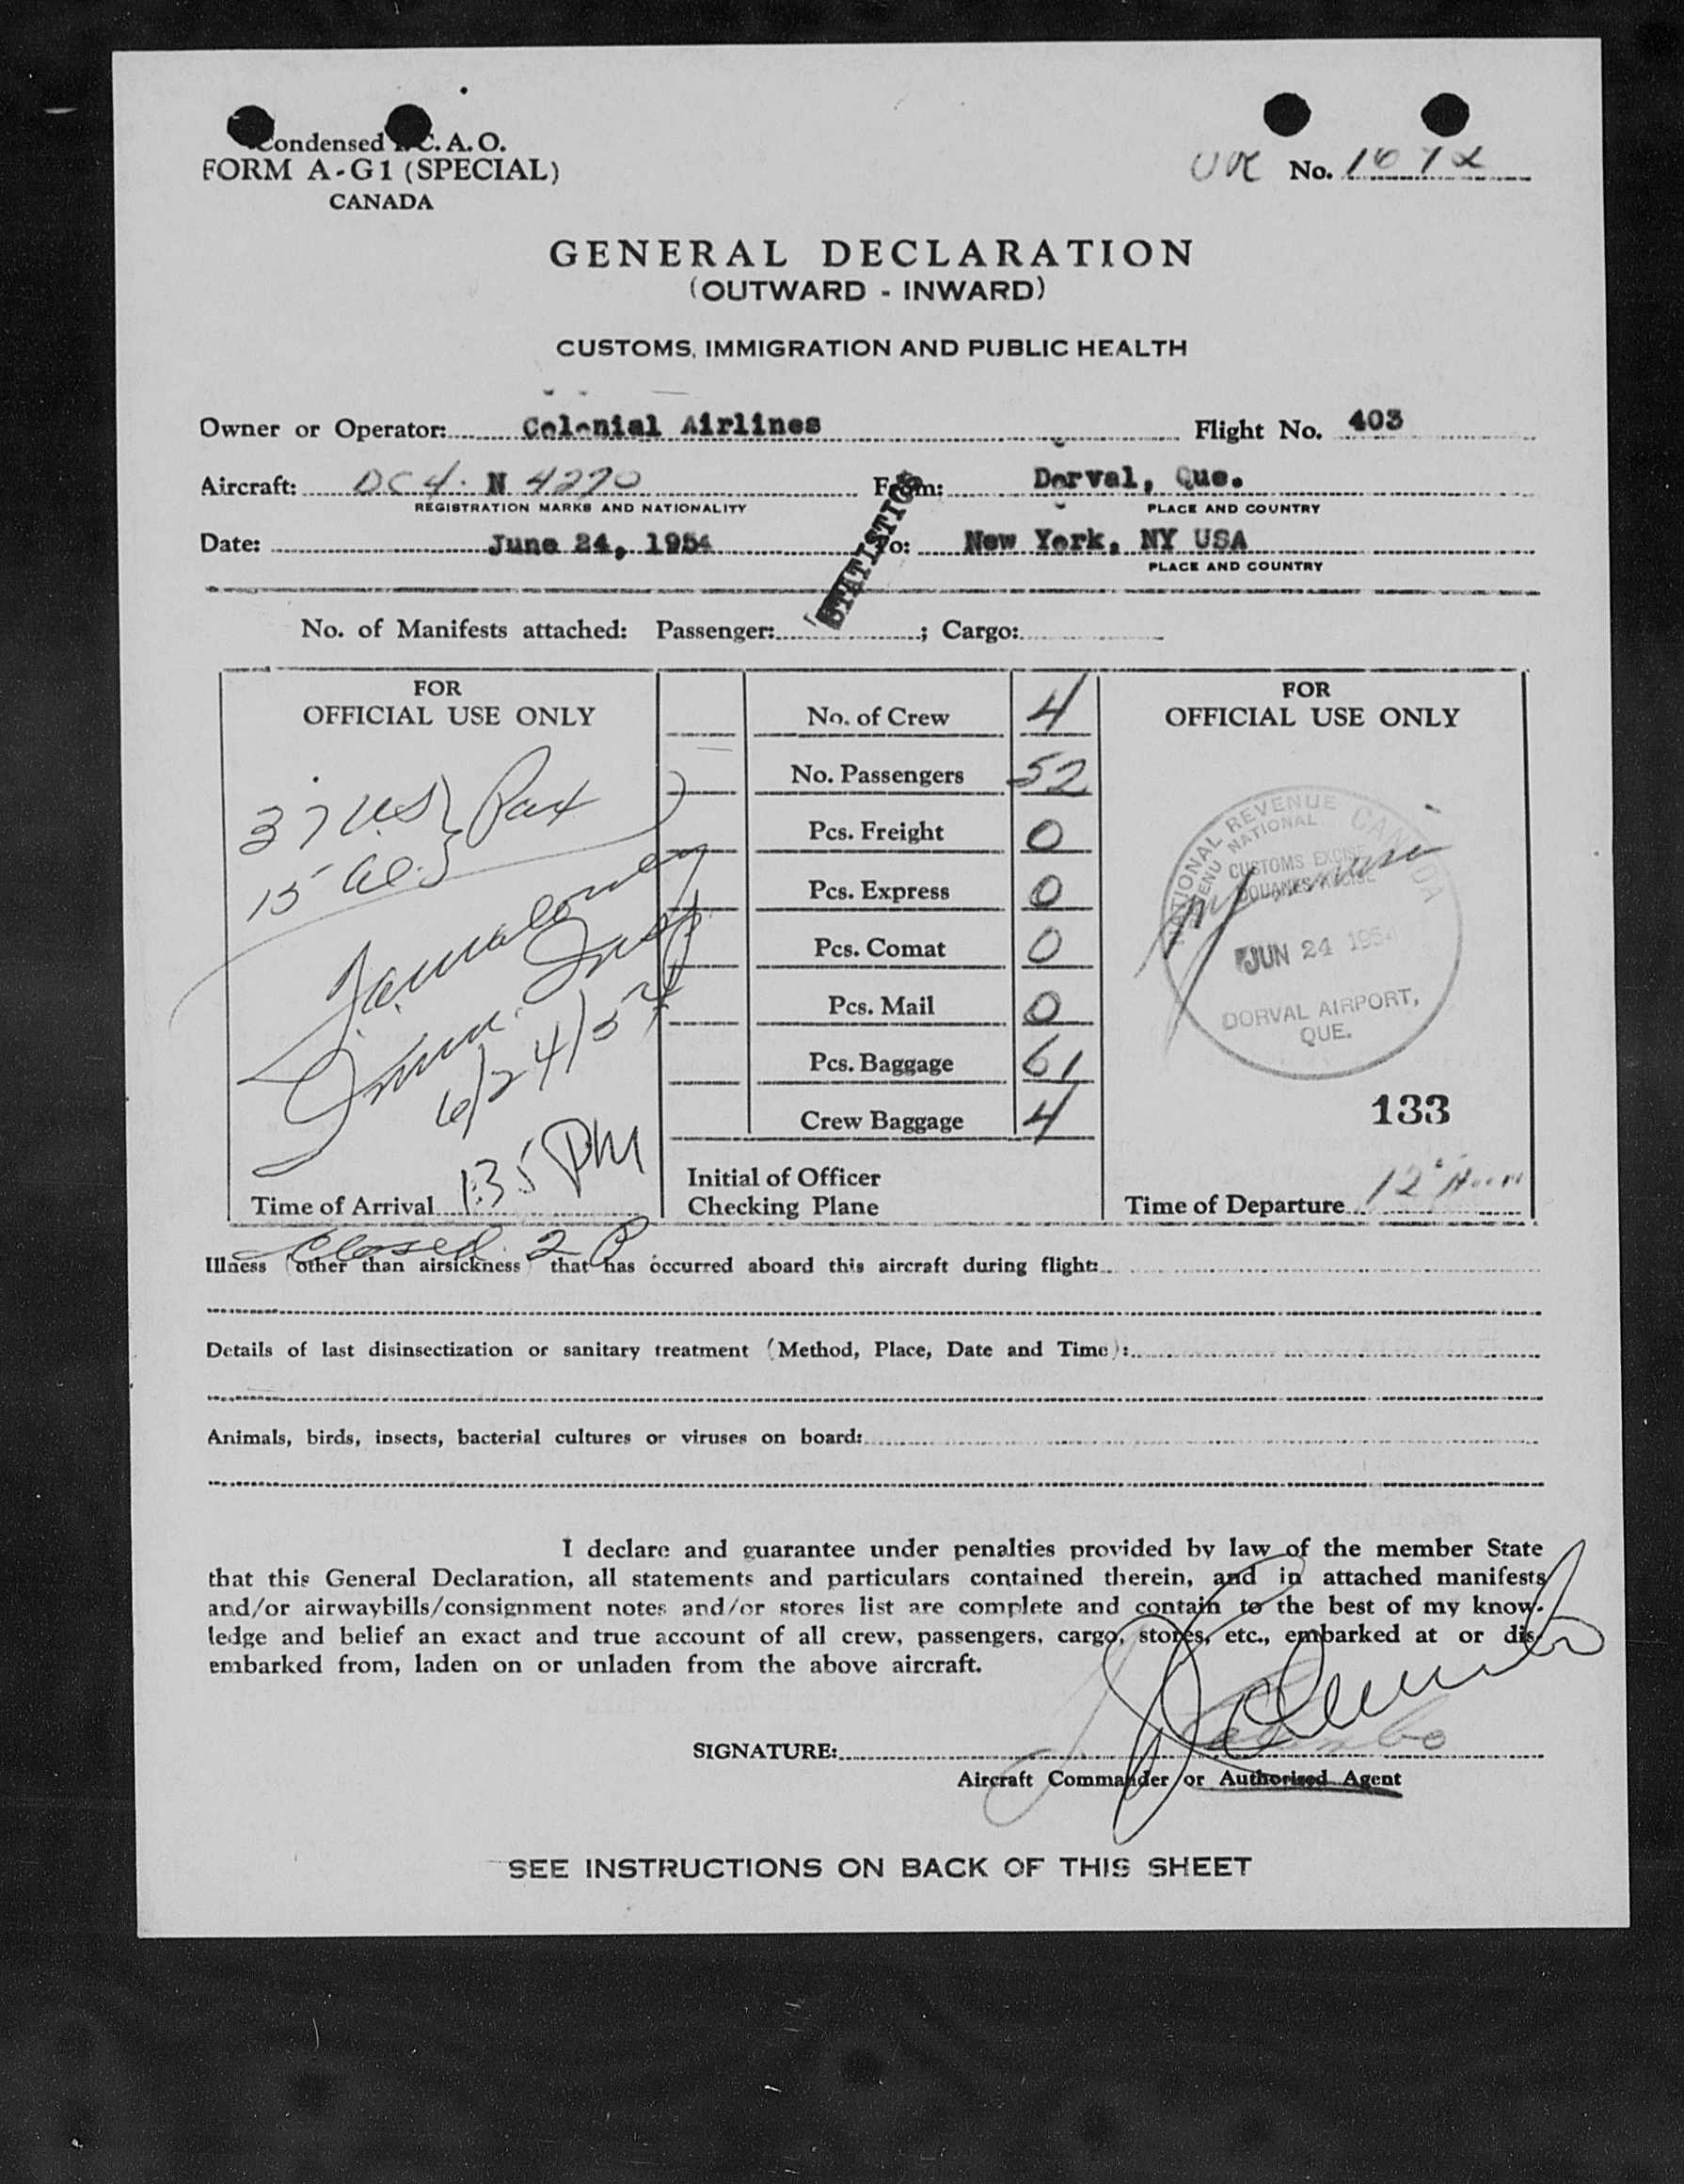 Condensed I. C. A. O.
FORM A-G1 (SPECIAL)
CANADA
No. 1672
GENERAL DECLARATION
(OUTWARD - INWARD)
CUSTOMS, IMMIGRATION AND PUBLIC HEALTH
Owner or Operator: Colonial Airlines Flight No. 403
Aircraft: DC4. N 4270 From: Dorval, Que.
REGISTRATION MARKS AND NATIONALITY PLACE AND COUNTRY
Date: June 24, 1954 To: New York, NY USA
PLACE AND COUNTRY
STATISTICS
No. of Manifests attached: Passenger: ; Cargo:
FOR
OFFICIAL USE ONLY
37 US Pax
15 al.
Imm. Insp
6/24/54
Time of Arrival 1:35 PM
Closed. 2 P
No. of Crew 4
No. Passengers 52
Pcs. Freight 0
Pcs. Express 0
Pcs. Comat 0
Pcs. Mail 0
Pcs. Baggage 61
Crew Baggage 4
Initial of Officer
Checking Plane
FOR
OFFICIAL USE ONLY
NATIONAL REVENUE CANADA
REVENU NATIONAL
CUSTOMS EXCISE
DOUANES ACCISE
JUN 24 1954
DORVAL AIRPORT,
QUE.
133
Time of Departure 12 Noon
Illness (other than airsickness) that has occurred aboard this aircraft during flight:
Details of last disinsectization or sanitary treatment (Method, Place, Date and Time):
Animals, birds, insects, bacterial cultures or viruses on board:
I declare and guarantee under penalties provided by law of the member State
that this General Declaration, all statements and particulars contained therein, and in attached manifests
and/or airwaybills/consignment notes and/or stores list are complete and contain to the best of my know-
ledge and belief an exact and true account of all crew, passengers, cargo, stores, etc., embarked at or dis-
embarked from, laden on or unladen from the above aircraft.
SIGNATURE:
Aircraft Commander or Authorised Agent
SEE INSTRUCTIONS ON BACK OF THIS SHEET